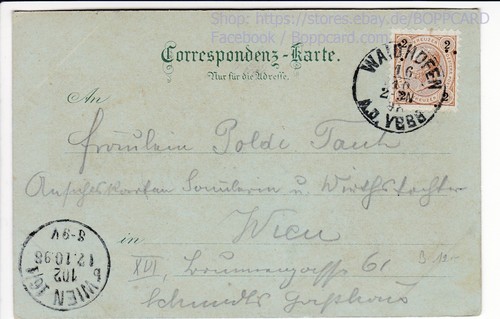 Shop: https://stores.ebay.de/BOPPCARD
Facebook / Boppcard.com
Correspondenz-Karte.
Nur für die Adresse.
2 2
2 2
WAIDHOFEN
A.D. YBBS
An
Fräulein Poldi Tauth
Ansichtskarten Samlerin u Wirthstochter
in Wien
XVI, Brunnengasse 61
Schmidts Gasthaus
WIEN 16/1
102
12.10.98
8-9V